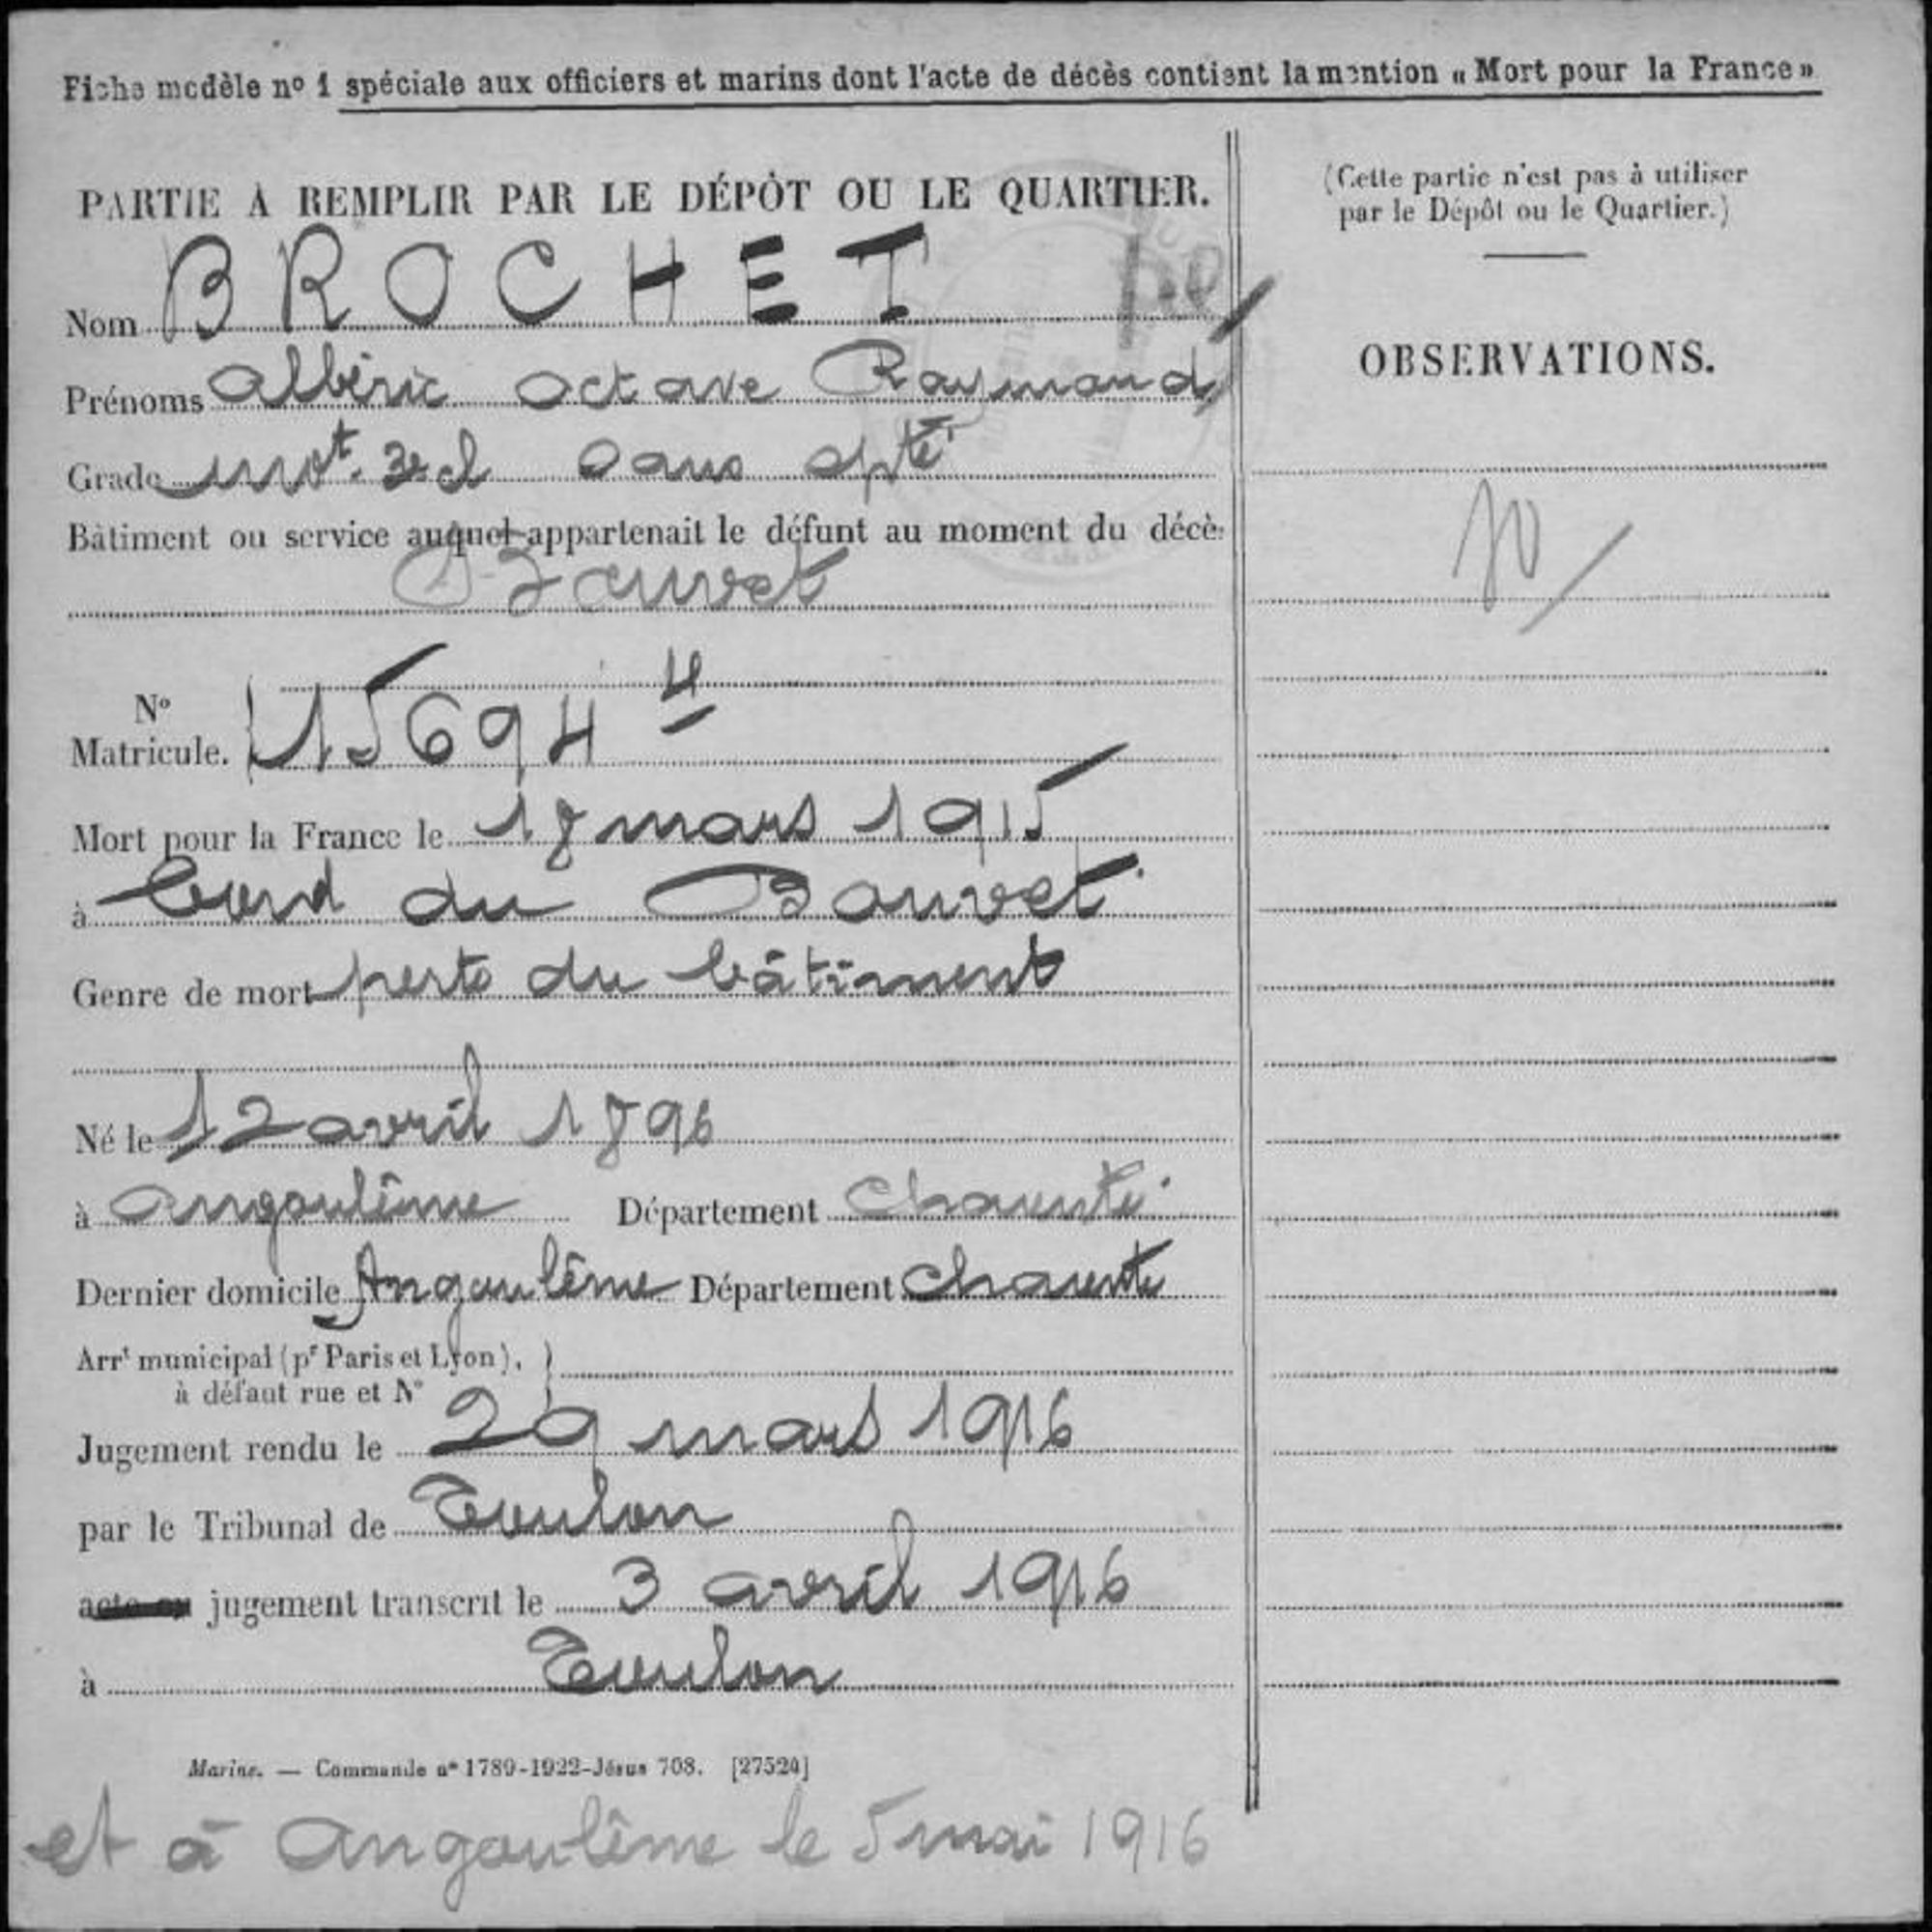 Fiche modèle nº 1 spéciale aux officiers et marins dont l'acte de décès contient la mention « Mort pour la France »
PARTIE A REMPLIR PAR LE DÉPÔT OU LE QUARTIER.
Nom BROCHET
Prénoms Albéric Octave Raymond
Grade mot. 3e cl sans spté
Bâtiment ou service auquel appartenait le défunt au moment du décè
Bouvet
Nº
Matricule. 15694 4
Mort pour la France le 18 mars 1915
à bord du Bouvet
Genre de mort perte du bâtiment
Né le 12 avril 1896
à Angoulême Département Charente
Dernier domicile Angoulême Département Charente
Arrt municipal (pr Paris et Lyon),
à défaut rue et Nº
Jugement rendu le 29 mars 1916
par le Tribunal de Toulon
acte ou jugement transcrit le 3 avril 1916
à Toulon
Marine. — Commande nº 1789-1922-Jésus 708. [27524]
et à Angoulême le 5 mai 1916
(Cette partie n'est pas à utiliser
par le Dépôt ou le Quartier.)
OBSERVATIONS.